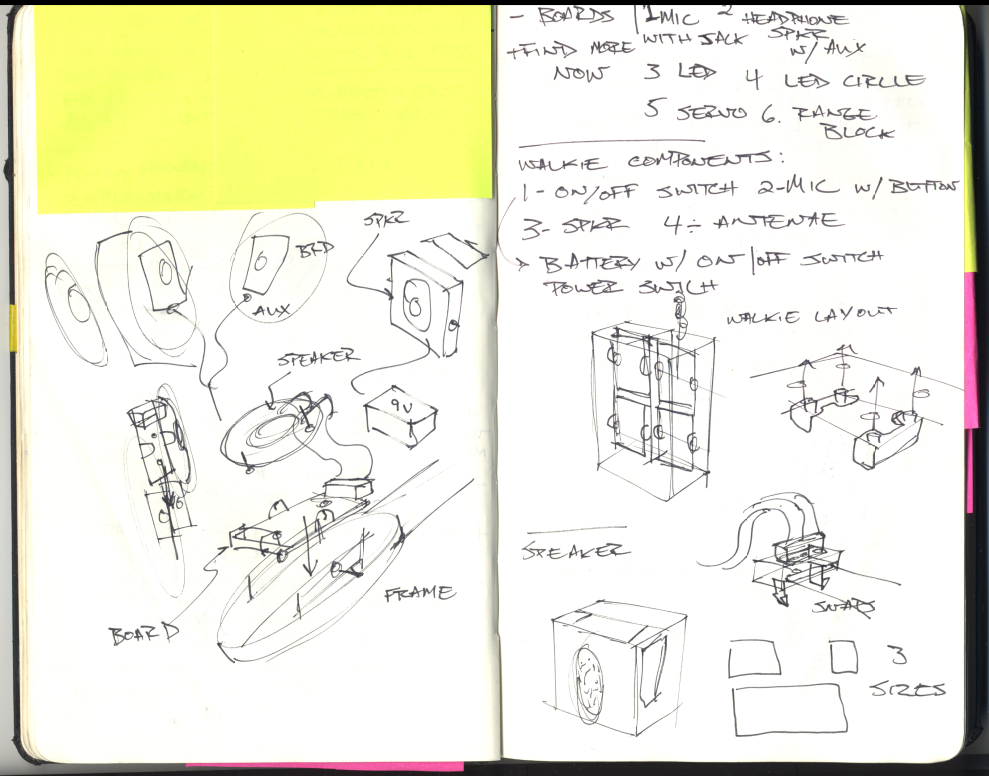 SPKR
BRD
AUX
SPEAKER
9V
FRAME
BOARD
- BOARDS | 1 MIC 2 HEADPHONE
+FIND MORE WITH JACK SPKR
NOW W/ AUX
3 LED 4 LED CIRCLE
5 SERVO 6. RANGE
BLOCK
WALKIE COMPONENTS:
1- ON/OFF SWITCH 2-MIC W/ BUTTON
3- SPKR 4- ANTENAE
> BATTERY W/ ON/OFF SWITCH
POWER SWITCH
WALKIE LAYOUT
SPEAKER
SNAPS
3
SIZES